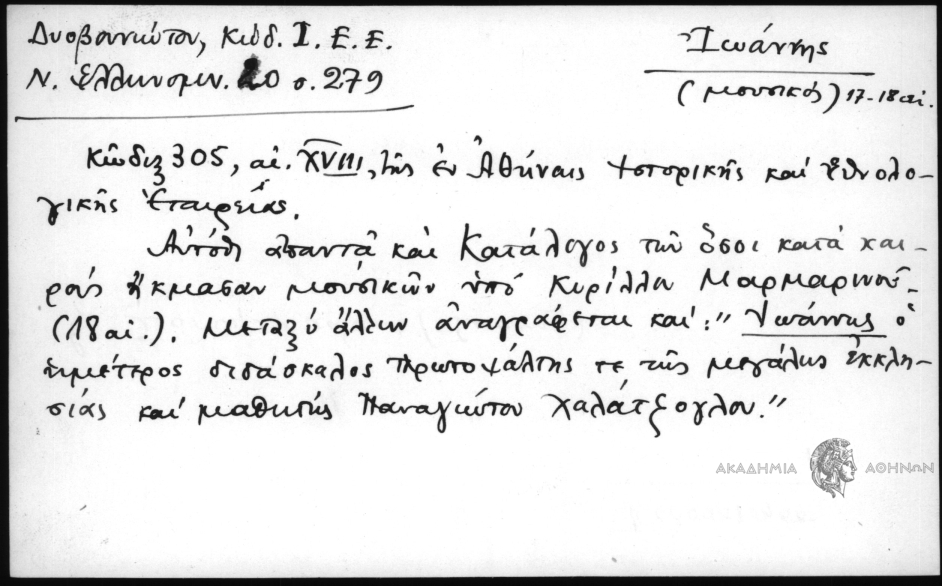 Δυοβουνιώτου, Κώδ. Ι. Ε. Ε.
Ν. Ἑλληνομν. 20 σ. 279
Ἰωάννης
(μουσικός) 17-18 αἰ.
Κῶδιξ 305, αἰ. XVIII, τῆς ἐν Ἀθήναις Ἱστορικῆς καὶ Ἐθνολο-
γικῆς Ἑταιρείας.
Αὐτόθι ἀπαντᾶ καὶ Κατάλογος τῶν ὅσοι κατὰ και-
ροὺς ἤκμασαν μουσικῶν ὑπὸ Κυρίλλου Μαρμαρινοῦ
(18 αἰ.). Μεταξὺ ἄλλων ἀναγράφεται καί: " Ἰωάννης ὁ
ἡμέτερος διδάσκαλος πρωτοψάλτης τε τῆς μεγάλης ἐκκλη-
σίας καὶ μαθητὴς Παναγιώτου Χαλάτζογλου."
ΑΚΑΔΗΜΙΑ ΑΘΗΝΩΝ